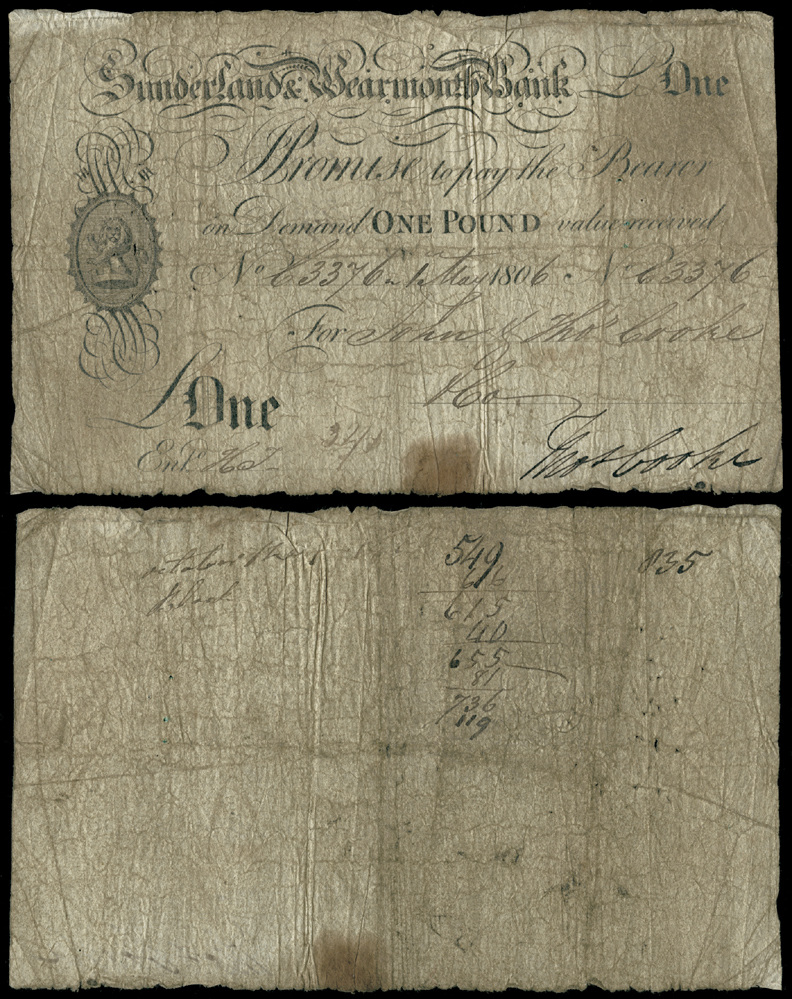 Sunderland & Wearmouth Bank £ One
I Promise to pay the Bearer
on Demand ONE POUND value received
No C3376 1 May 1806 . No C3376
For John & Thos Cooke
& Co
£ One
Entd
Thos Cooke
549 835
66
615
40
655
81
736
119